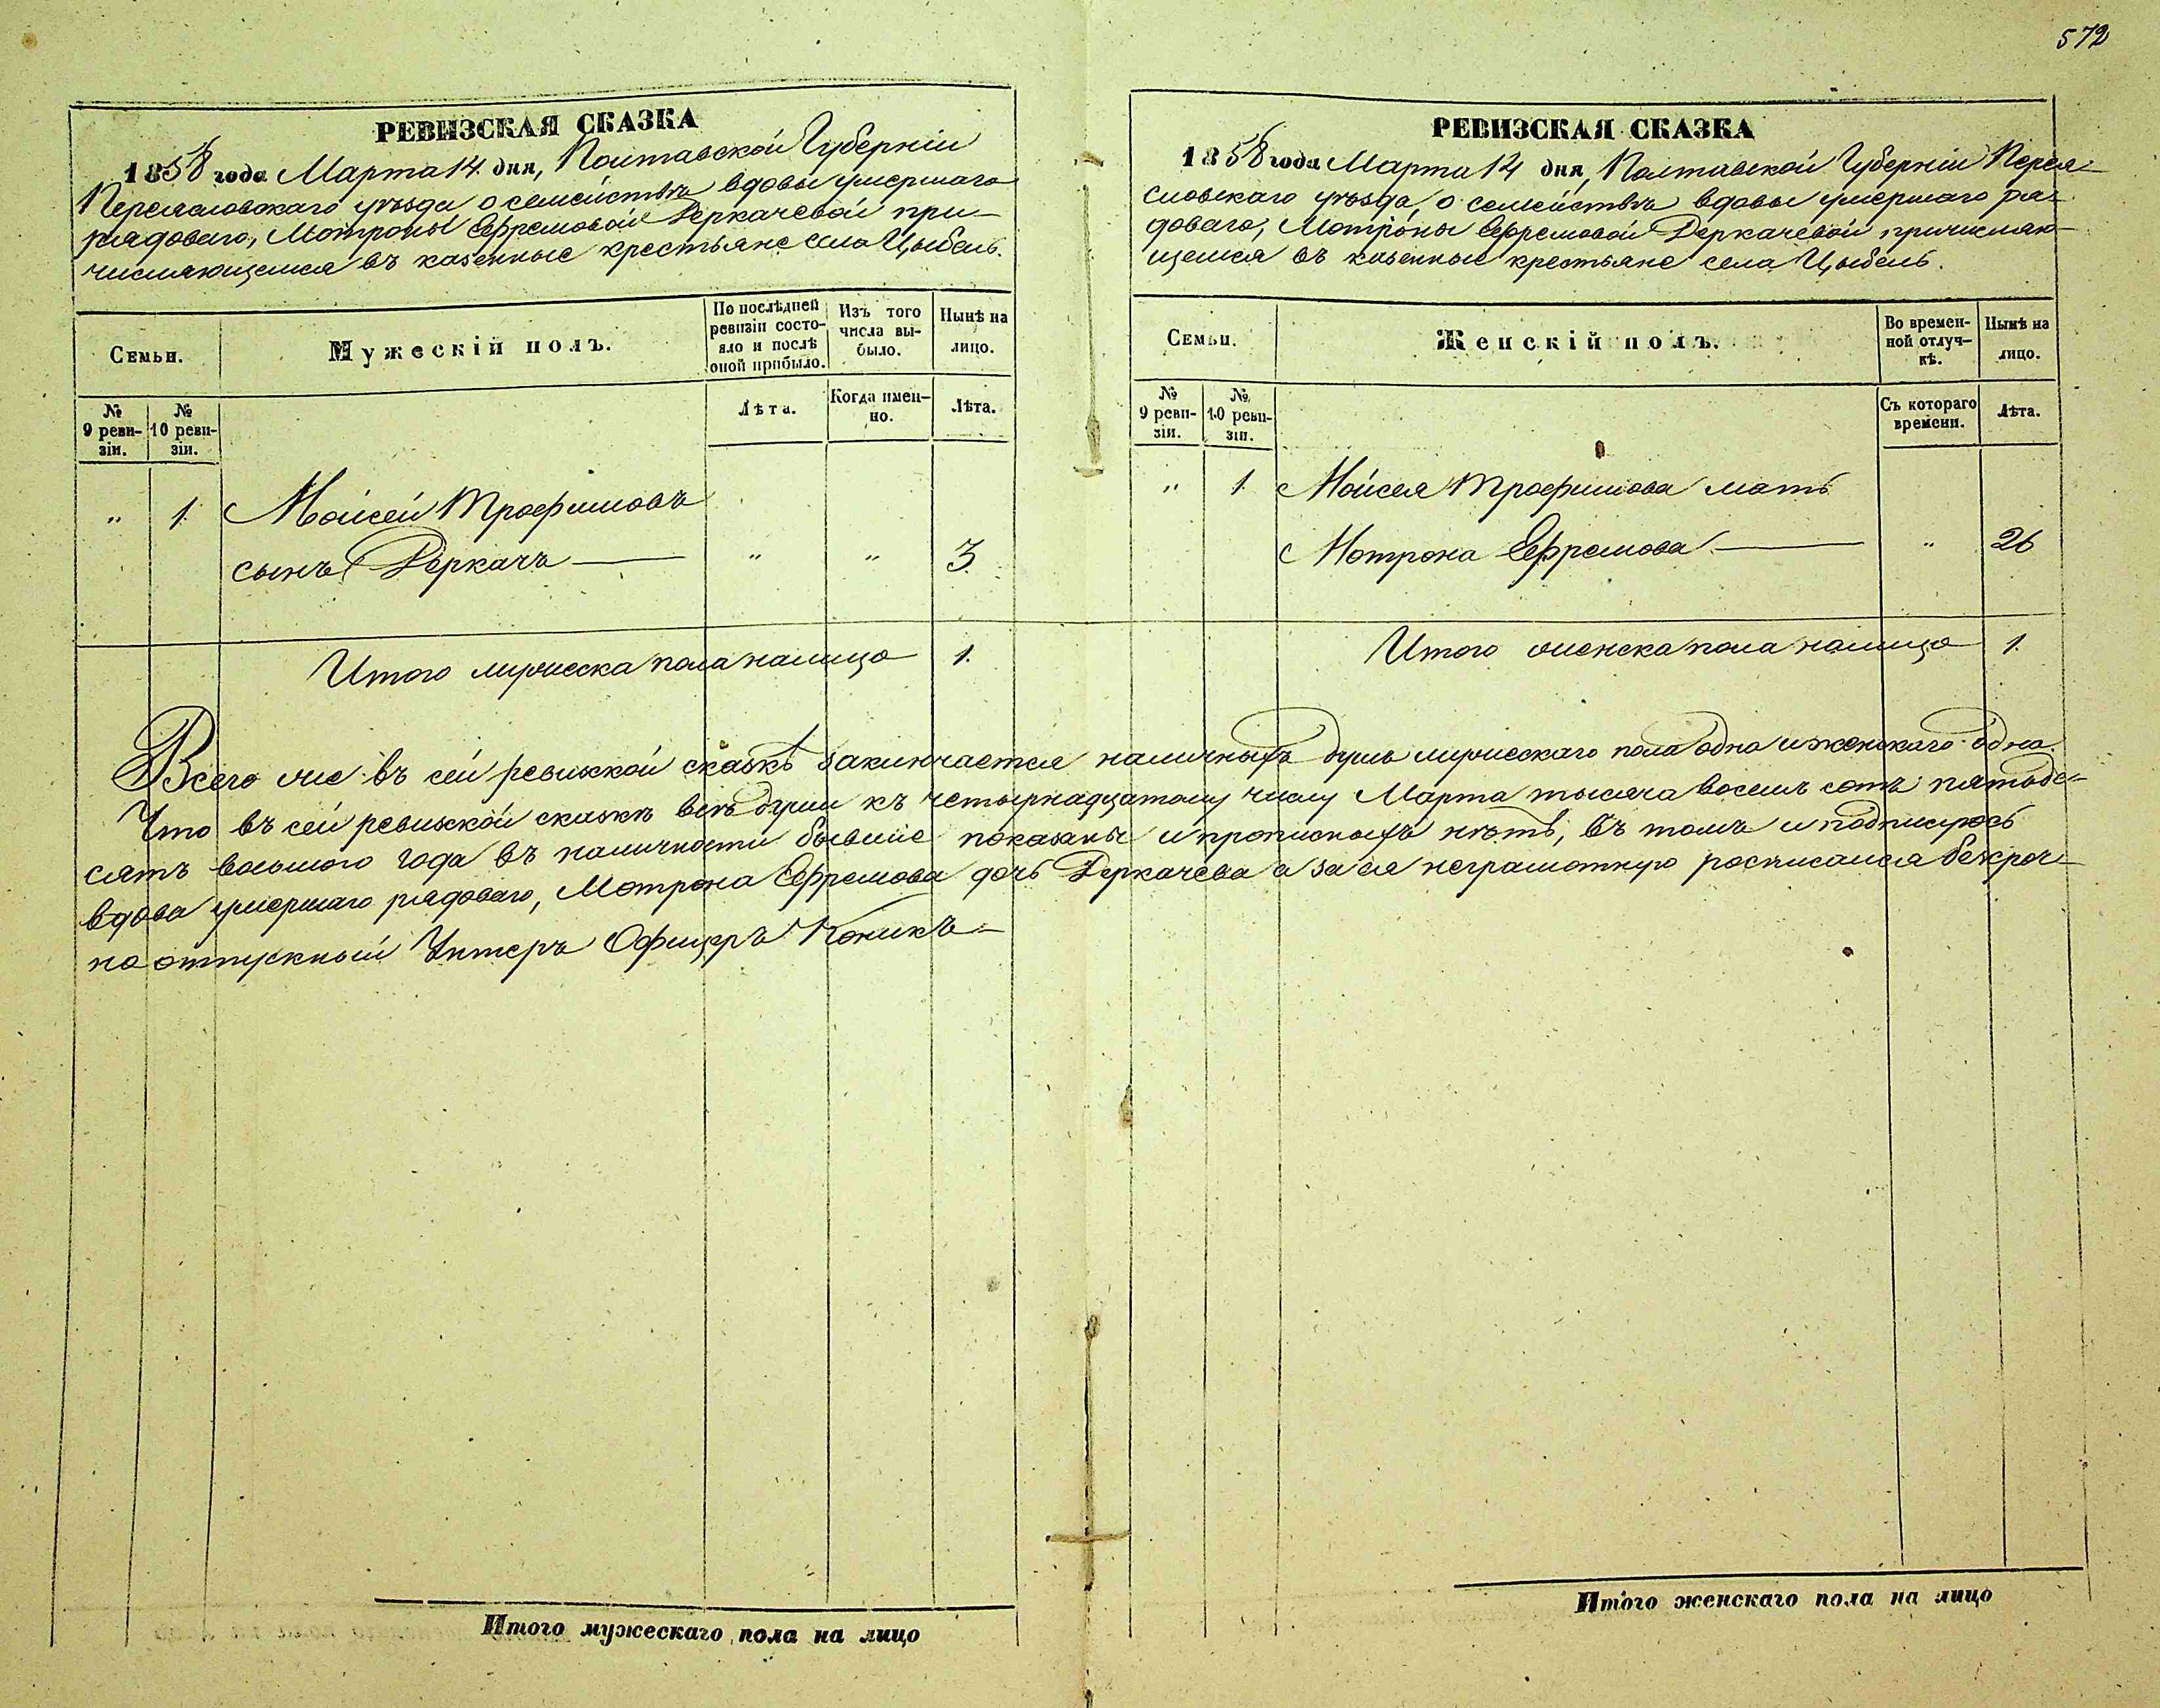 572
РЕВИЗСКАЯ СКАЗКА
1858 года Марта 14. дня, Полтавской Губерніи
Переясловскаго уѣзда о семействѣ вдовы умершаго
рядоваго, Мотроны Ефремовой Деркачевой при-
числяющемся въ казенные крестьяне села Цыбель.
Семьи.
Мужескій полъ.
По послѣдней ревизіи состояло и послѣ оной прибыло.
Изъ того числа выбыло.
Нынѣ на лицо.
№ 9 ревизіи.
№ 10 ревизіи.
Лѣта.
Когда именно.
Лѣта.
" 1. Моисей Трофимовъ
сынъ Деркачъ — " " 3.
Итого мужеска пола налицо 1.
РЕВИЗСКАЯ СКАЗКА
1858 года Марта 14 дня, Полтавской Губерніи Перея-
словскаго уѣзда, о семействѣ вдовы умершаго ря-
доваго, Мотроны Ефремовой Деркачевой причисляю-
щемся въ казенные крестьяне села Цыбель.
Семьи.
Женскій полъ.
Во временной отлучкѣ.
Нынѣ на лицо.
№ 9 ревизіи.
№ 10 ревизіи.
Съ котораго времени.
Лѣта.
" 1. Моисея Трофимова мать
Мотрона Ефремова — " 26
Итого женска пола налицо 1.
Всего же въ сей ревизкой сказкѣ заключается наличныхъ душъ мужескаго пола одна и женскаго одна.
Что въ сей ревизкой сказкѣ всѣ души къ четырнадцатому числу Марта тысяча восемь сотъ пятьде-
сятъ восьмого года въ наличности бывшіе показаны и прописныхъ нѣтъ, въ томъ и подписуюсь
вдова умершаго рядоваго, Мотрона Ефремова дочь Деркачева а за ея неграмотную росписался безсроч-
но отпускный Унтеръ Офицеръ Коникъ
Итого мужескаго пола на лицо
Итого женскаго пола на лицо